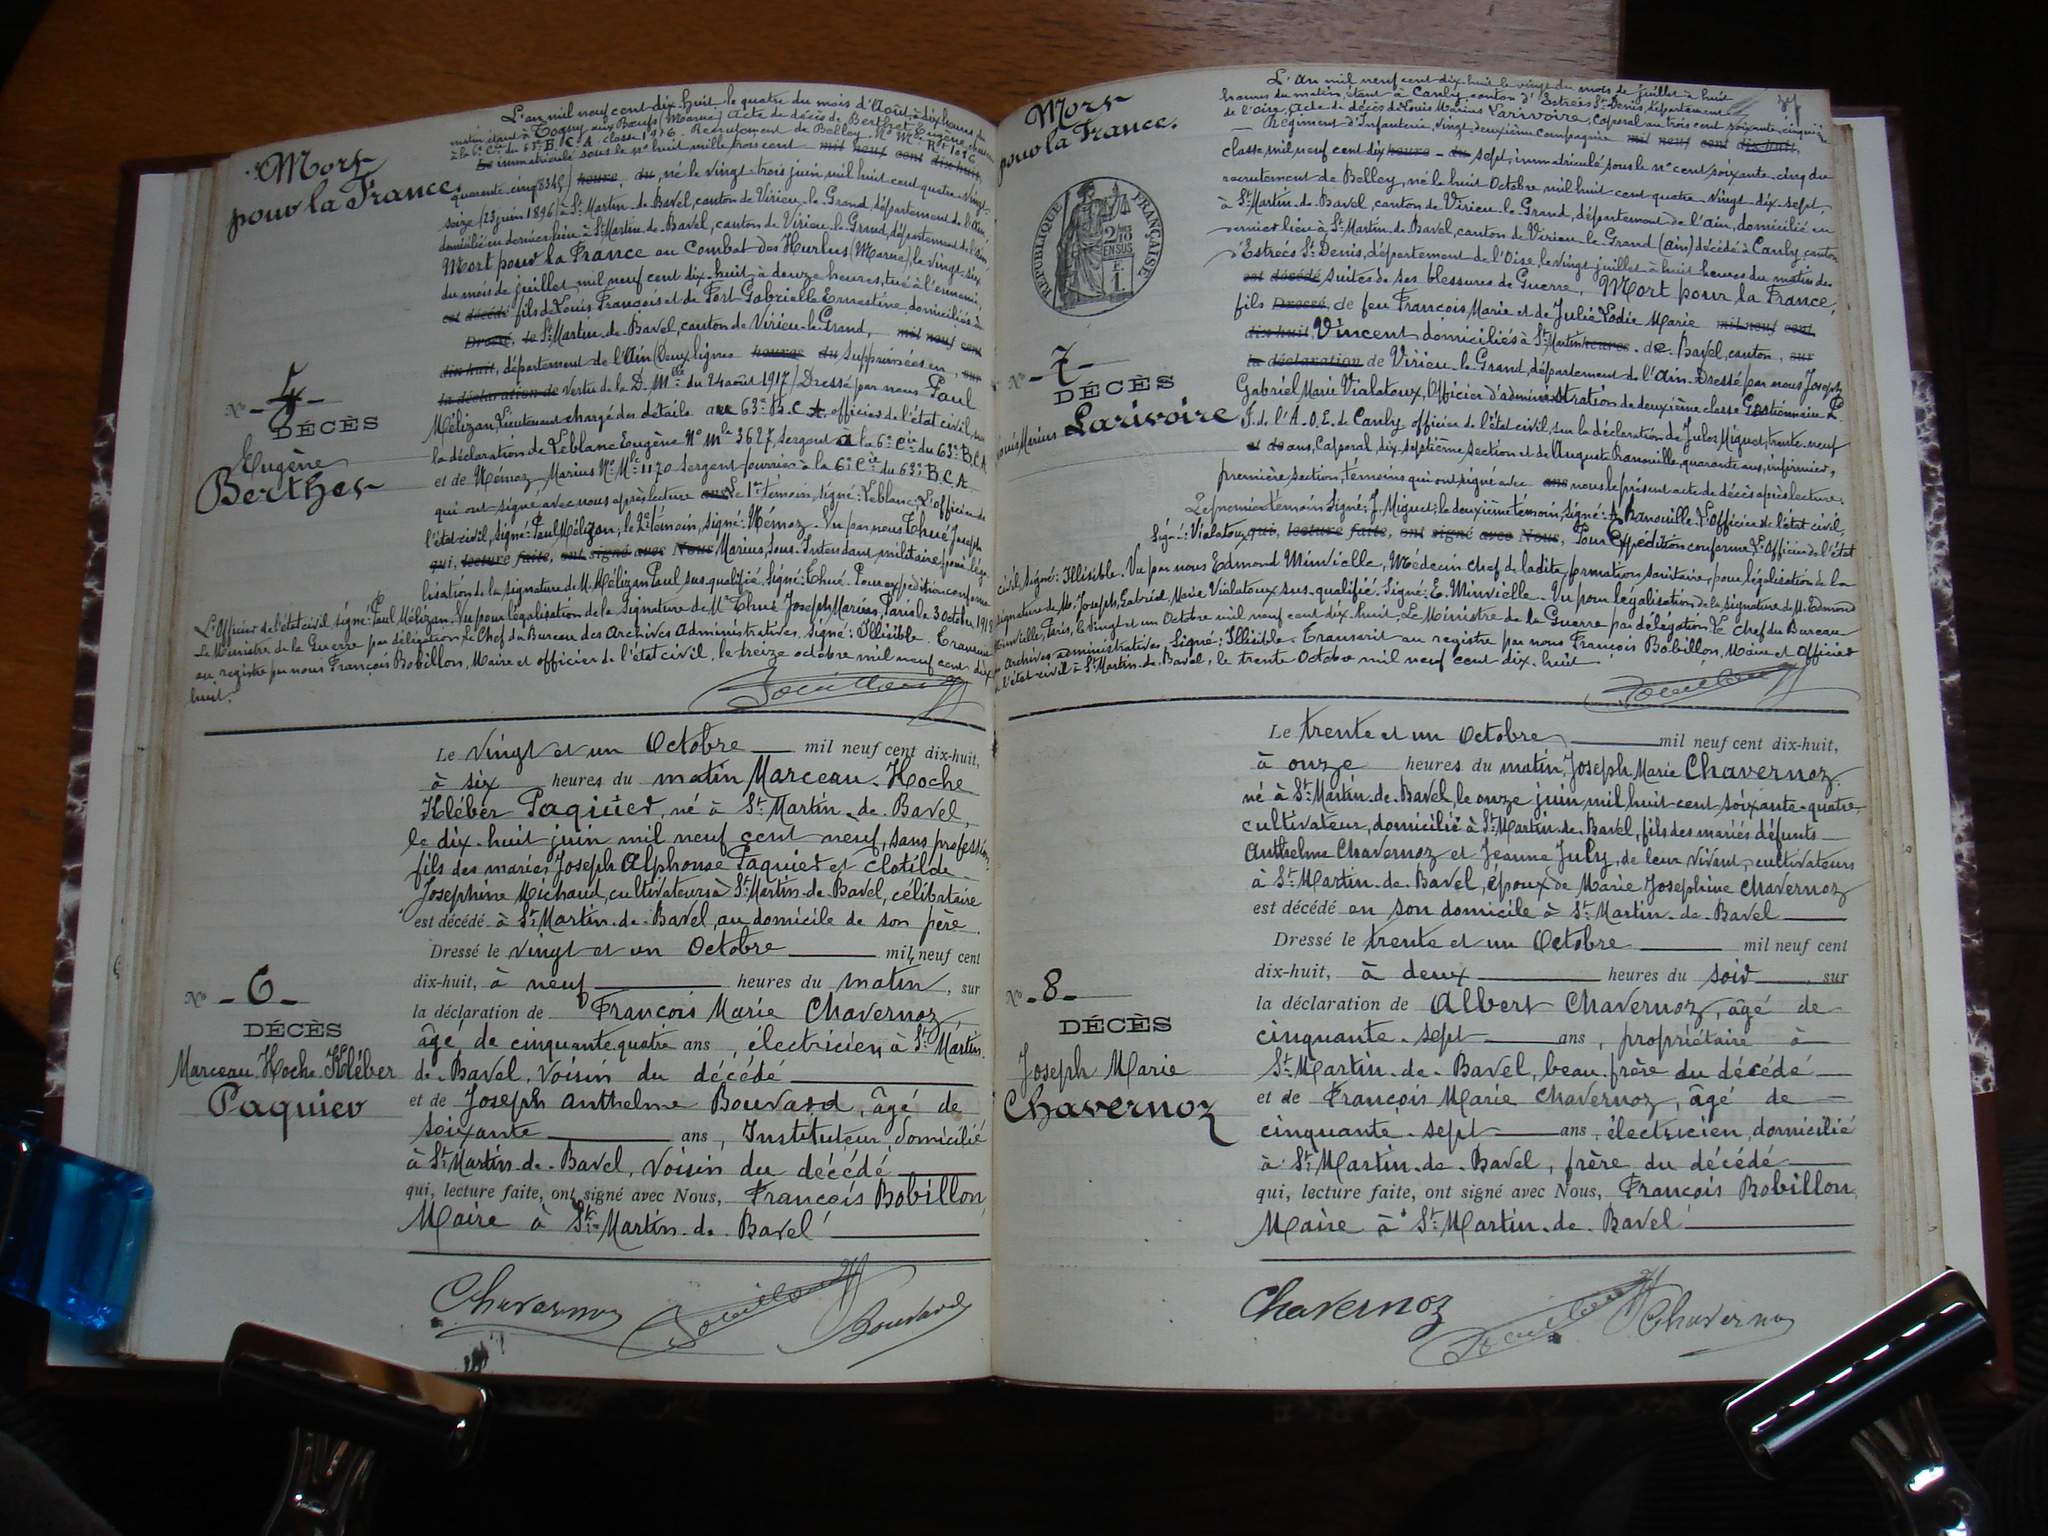 Mort
pour la France.
L'an mil neuf cent dix-huit le quatre du mois d'Août, à dix heures du
matin, étant à Togny aux Boeufs (Marne) Acte de décès de Berthet Eugène,
à la 6e Cie du 63e B.C.A. classe 1916. Recrutement de Belley. No Mle Rt 1016
Le immatriculé sous le no huit mille trois cent mil neuf cent dix-huit,
quarante-cinq (8345) heure, du, né le vingt-trois juin mil huit cent quatre-vingt-
seize (23 juin 1896) à St Martin-de-Bavel, canton de Virieu-le-Grand, département de l'Ain,
domicilié en dernier lieu à St Martin-de-Bavel, canton de Virieu-le-Grand, département de l'Ain,
Mort pour la France au Combat des Hurlus (Marne), le vingt-six
du mois de juillet mil neuf cent dix-huit, à douze heures, tué à l'ennemi,
est décédé fils de Louis François et de Fort Gabrielle Ernestine, domiciliés à
Dressé, le St Martin-de-Bavel, canton de Virieu-le-Grand, mil neuf cent
dix-huit, département de l'Ain (Deux lignes heures du supprimées en, sur
la déclaration de vertu de la D. Mlle du 24 août 1917) Dressé par nous Paul
Mélizan, Lieutenant chargé des détails au 63e B.C.A, officier de l'état civil, sur
la déclaration de Leblanc Eugène No Mle 3627, sergent à la 6e Cie du 63e B.C.A
et de Némoz Marius No Mle 1170 Sergent fourrier à la 6e Cie du 63e B.C.A.
qui ont signé avec nous après lecture ans Le 1er témoin, signé: Leblanc, L'officier de
l'état-civil, signé: Paul Mélizan; le 2e témoin, signé: Némoz. Vu par nous Thué Joseph
qui, lecture faite, ont signé avec Nous Marius, Sous-Intendant militaire, pour léga-
lisation de la signature de M. Mélizan Paul sus-qualifié, Signé: Thué. Pour expédition conforme
L'Officier de l'état civil signé: Paul Mélizan. Vu pour légalisation de la Signature de Mr Thué Joseph Marius, Paris le 3 octobre 1918
Le Ministre de la Guerre par délégation, Le Chef du Bureau des Archives Administratives, signé: Illisible. Transcrit
au registre par nous François Bobillon, Maire et officier de l'état civil, le treize octobre mil neuf cent dix
huit.
No -5-
DÉCÈS
Eugène
Berthet
Bobillon
Le vingt et un Octobre mil neuf cent dix-huit,
à six heures du matin Marceau-Hoche
Kléber Paquier, né à St Martin-de-Bavel,
le dix-huit juin mil neuf cent neuf, sans profession
fils des mariés Joseph Alphonse Paquier et Clotilde
Josephine Michaud, cultivateurs à St Martin-de-Bavel, célibataire
est décédé à St Martin-de-Bavel, au domicile de son père.
Dressé le vingt et un Octobre mil neuf cent
dix-huit, à neuf heures du matin, sur
la déclaration de François Marie Chavernoz
âgé de cinquante quatre ans, électricien, à St Martin
de-Bavel, voisin du décédé
et de Joseph Anthelme Bouvard, âgé de
soixante ans, Instituteur, domicilié
à St Martin-de-Bavel, voisin du décédé
qui, lecture faite, ont signé avec Nous, François Bobillon,
Maire à St Martin-de-Bavel
No -6-
DÉCÈS
Marceau-Hoche-Kléber
Paquier
Chavernoz Bobillon Bouvard
Mort
pour la France.
L'an mil neuf cent dix-huit le vingt du mois de juillet à huit
heures du matin, étant à Canly canton d'Estrées St Denis, département
de l'Oise, Acte de décès de Louis Marius Larivoire, Caporal au trois cent soixante-cinquiè
Régiment d'Infanterie, vingt-deuxième compagnie mil neuf cent dix-huit,
classe mil neuf cent dix heure - du sept, immatriculé sous le no cent soixante-cinq du
recrutement de Belley, né le huit Octobre mil huit cent quatre-vingt-dix-sept,
à St Martin-de-Bavel, canton de Virieu-le-Grand, département de l'Ain, domicilié en
dernier lieu à St Martin-de-Bavel, canton de Virieu-le-Grand (ain) décédé à Canly, canton
d'Estrées St Denis, département de l'Oise, le vingt juillet à huit heures du matin des
est décédé suites de ses blessures de Guerre, Mort pour la France,
fils Dressé, de feu François Marie et de Julie Lodie Marie mil neuf cent
dix-huit, Vincent domiciliés à St Martin heures de Bavel, canton, sur
la déclaration de Virieu-le-Grand, département de l'Ain. Dressé par nous Joseph
Gabriel Marie Vialatoux, Officier d'administration de deuxième classe Gestionnaire
de l'A.O.E. de Canly officier de l'état civil, sur la déclaration de Jules Miguet, trente-neuf
et de ans, Caporal dix-septième section et de Auguste Ranouille, quarante ans, infirmier,
première section, témoins qui ont signé avec ans nous le présent acte de décès après lecture.
Le premier témoin Signé: J. Miguet; le deuxième témoin, signé: A. Ranouille. L'Officier de l'état civil,
Signé: Vialatoux qui, lecture faite, ont signé avec Nous, Pour Expédition conforme L'Officier de l'état
civil, signé: Illisible. Vu par nous Edmond Minvielle, Médecin chef de ladite formation sanitaire, pour légalisation de la
signature de M. Joseph, Gabriel, Marie Vialatoux sus-qualifié. Signé: E. Minvielle. Vu pour légalisation de la signature de M. Edmond
Minvielle, Paris, le vingt et un Octobre mil neuf cent dix-huit, Le Ministre de la Guerre par délégation Le Chef du Bureau
Archives administratives Signé: Illisible. Transcrit au registre par nous François Bobillon, Maire et Officier
de l'état civil à St Martin-de-Bavel, le trente Octobre mil neuf cent dix-huit
RÉPUBLIQUE FRANÇAISE
2/10
EN SUS
No -7-
DÉCÈS
Louis Marius Larivoire
Bobillon
Le trente et un Octobre mil neuf cent dix-huit,
à onze heures du matin, Joseph Marie Chavernoz
né à St Martin-de-Bavel, le onze juin mil huit cent soixante-quatre,
cultivateur, domicilié à St Martin-de-Bavel, fils des mariés défunts
Anthelme Chavernoz et Jeanne July, de leur vivant, cultivateurs
à St Martin-de-Bavel, époux de Marie Josephine Chavernoz
est décédé en son domicile à St Martin-de-Bavel
Dressé le trente et un Octobre mil neuf cent
dix-huit, à deux heures du soir, sur
la déclaration de Albert Chavernoz, âgé de
cinquante-sept ans, propriétaire à
St Martin-de-Bavel, beau-frère du décédé
et de François Marie Chavernoz, âgé de
cinquante-sept ans, électricien, domicilié
à St Martin-de-Bavel, frère du décédé
qui, lecture faite, ont signé avec Nous, François Bobillon,
Maire à St Martin-de-Bavel
No -8-
DÉCÈS
Joseph Marie
Chavernoz
Chavernoz Bobillon Chavernoz